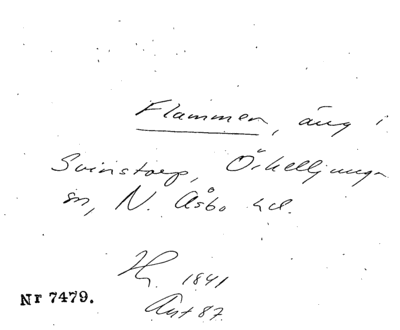 Flammen, äng i
Svinstorp, Örkelljunga
sn, N. Åsbo hd.
Hy. 1841
Akt 87
Nr 7479.